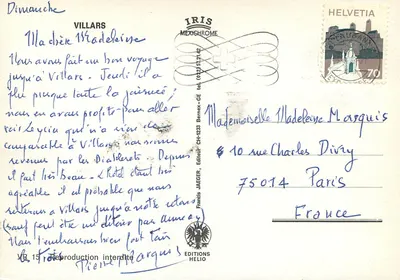 Dimanche
VILLARS
Ma chère Madeleine
Nous avons fait un bon voyage
jusqu'à Villars. Jeudi il a
plu presque toute la journée,
nous en avons profité pour aller
voir Leysin qui n'a rien de
comparable à Villars, nous sommes
revenus par les Diablerets. Depuis
il fait très beau. L'hôtel étant très
agréable il est probable que nous
resterons à Villars jusqu'à notre retour
(sauf peut être un détour par
Nous t'embrassons bien fort tous
Pierre Marquis
IRIS
MEXICHROME
Francis JAEGER, Editeur CH-1233 Bernex-GE tél. (022)
EDITIONS
HELIO
VR 15 Reproduction interdite
HELVETIA
70
Mademoiselle Madeleine Marquis
10 rue Charles Divry
75014 Paris
France